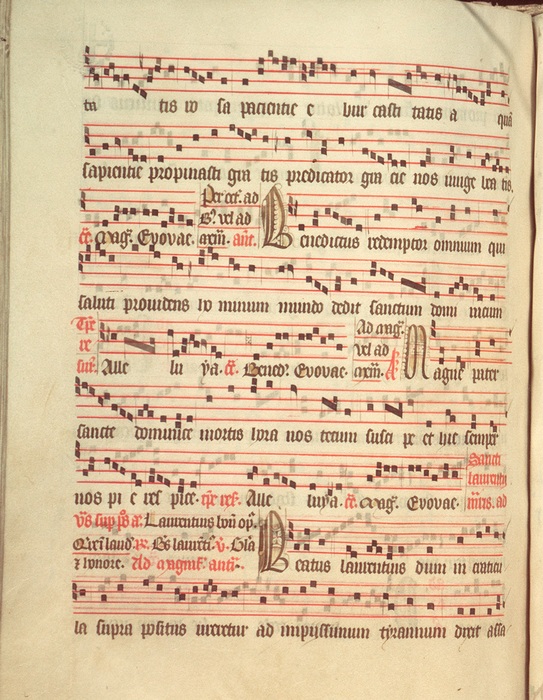 ta tis ro sa paciencie e bur casti tatis a qua
sapiencie propinasti gra tis predicator gra cie nos iunge bea tis.
Per oct. ad
B. vel ad
c. Mag. Evovae. mem. ant. Benedictus redemptor omnium qui
saluti providens ho minum mundo dedit sanctum domi nicum
Tpe
re Ad mag.
vel ad
sur. Alle lu ya. c. Bened. Evovae. mem. Magne pater
sancte dominice mortis hora nos tecum susci pe et hic semper
Sancti
laurentii
nos pi e res pice. tpe res. Alle luya. c. Mag. Evovae. mris. ad
vs sup ps a Laurentius bon op.
laud. B laureti. v. Gla
z honore. Ad magnif. anti. Beatus laurentius dum in craticu
la supra positus ureretur ad impiissimum tyrannum dixit assa